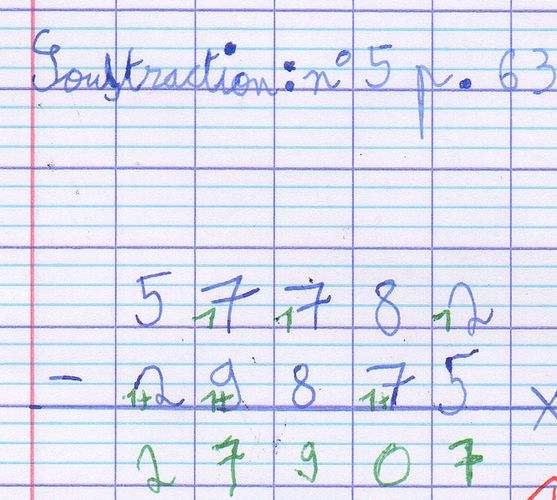 Soustraction : n° 5 p. 63
5 17 17 8 12
- 1+2 1+9 8 1+7 5
2 7 9 0 7